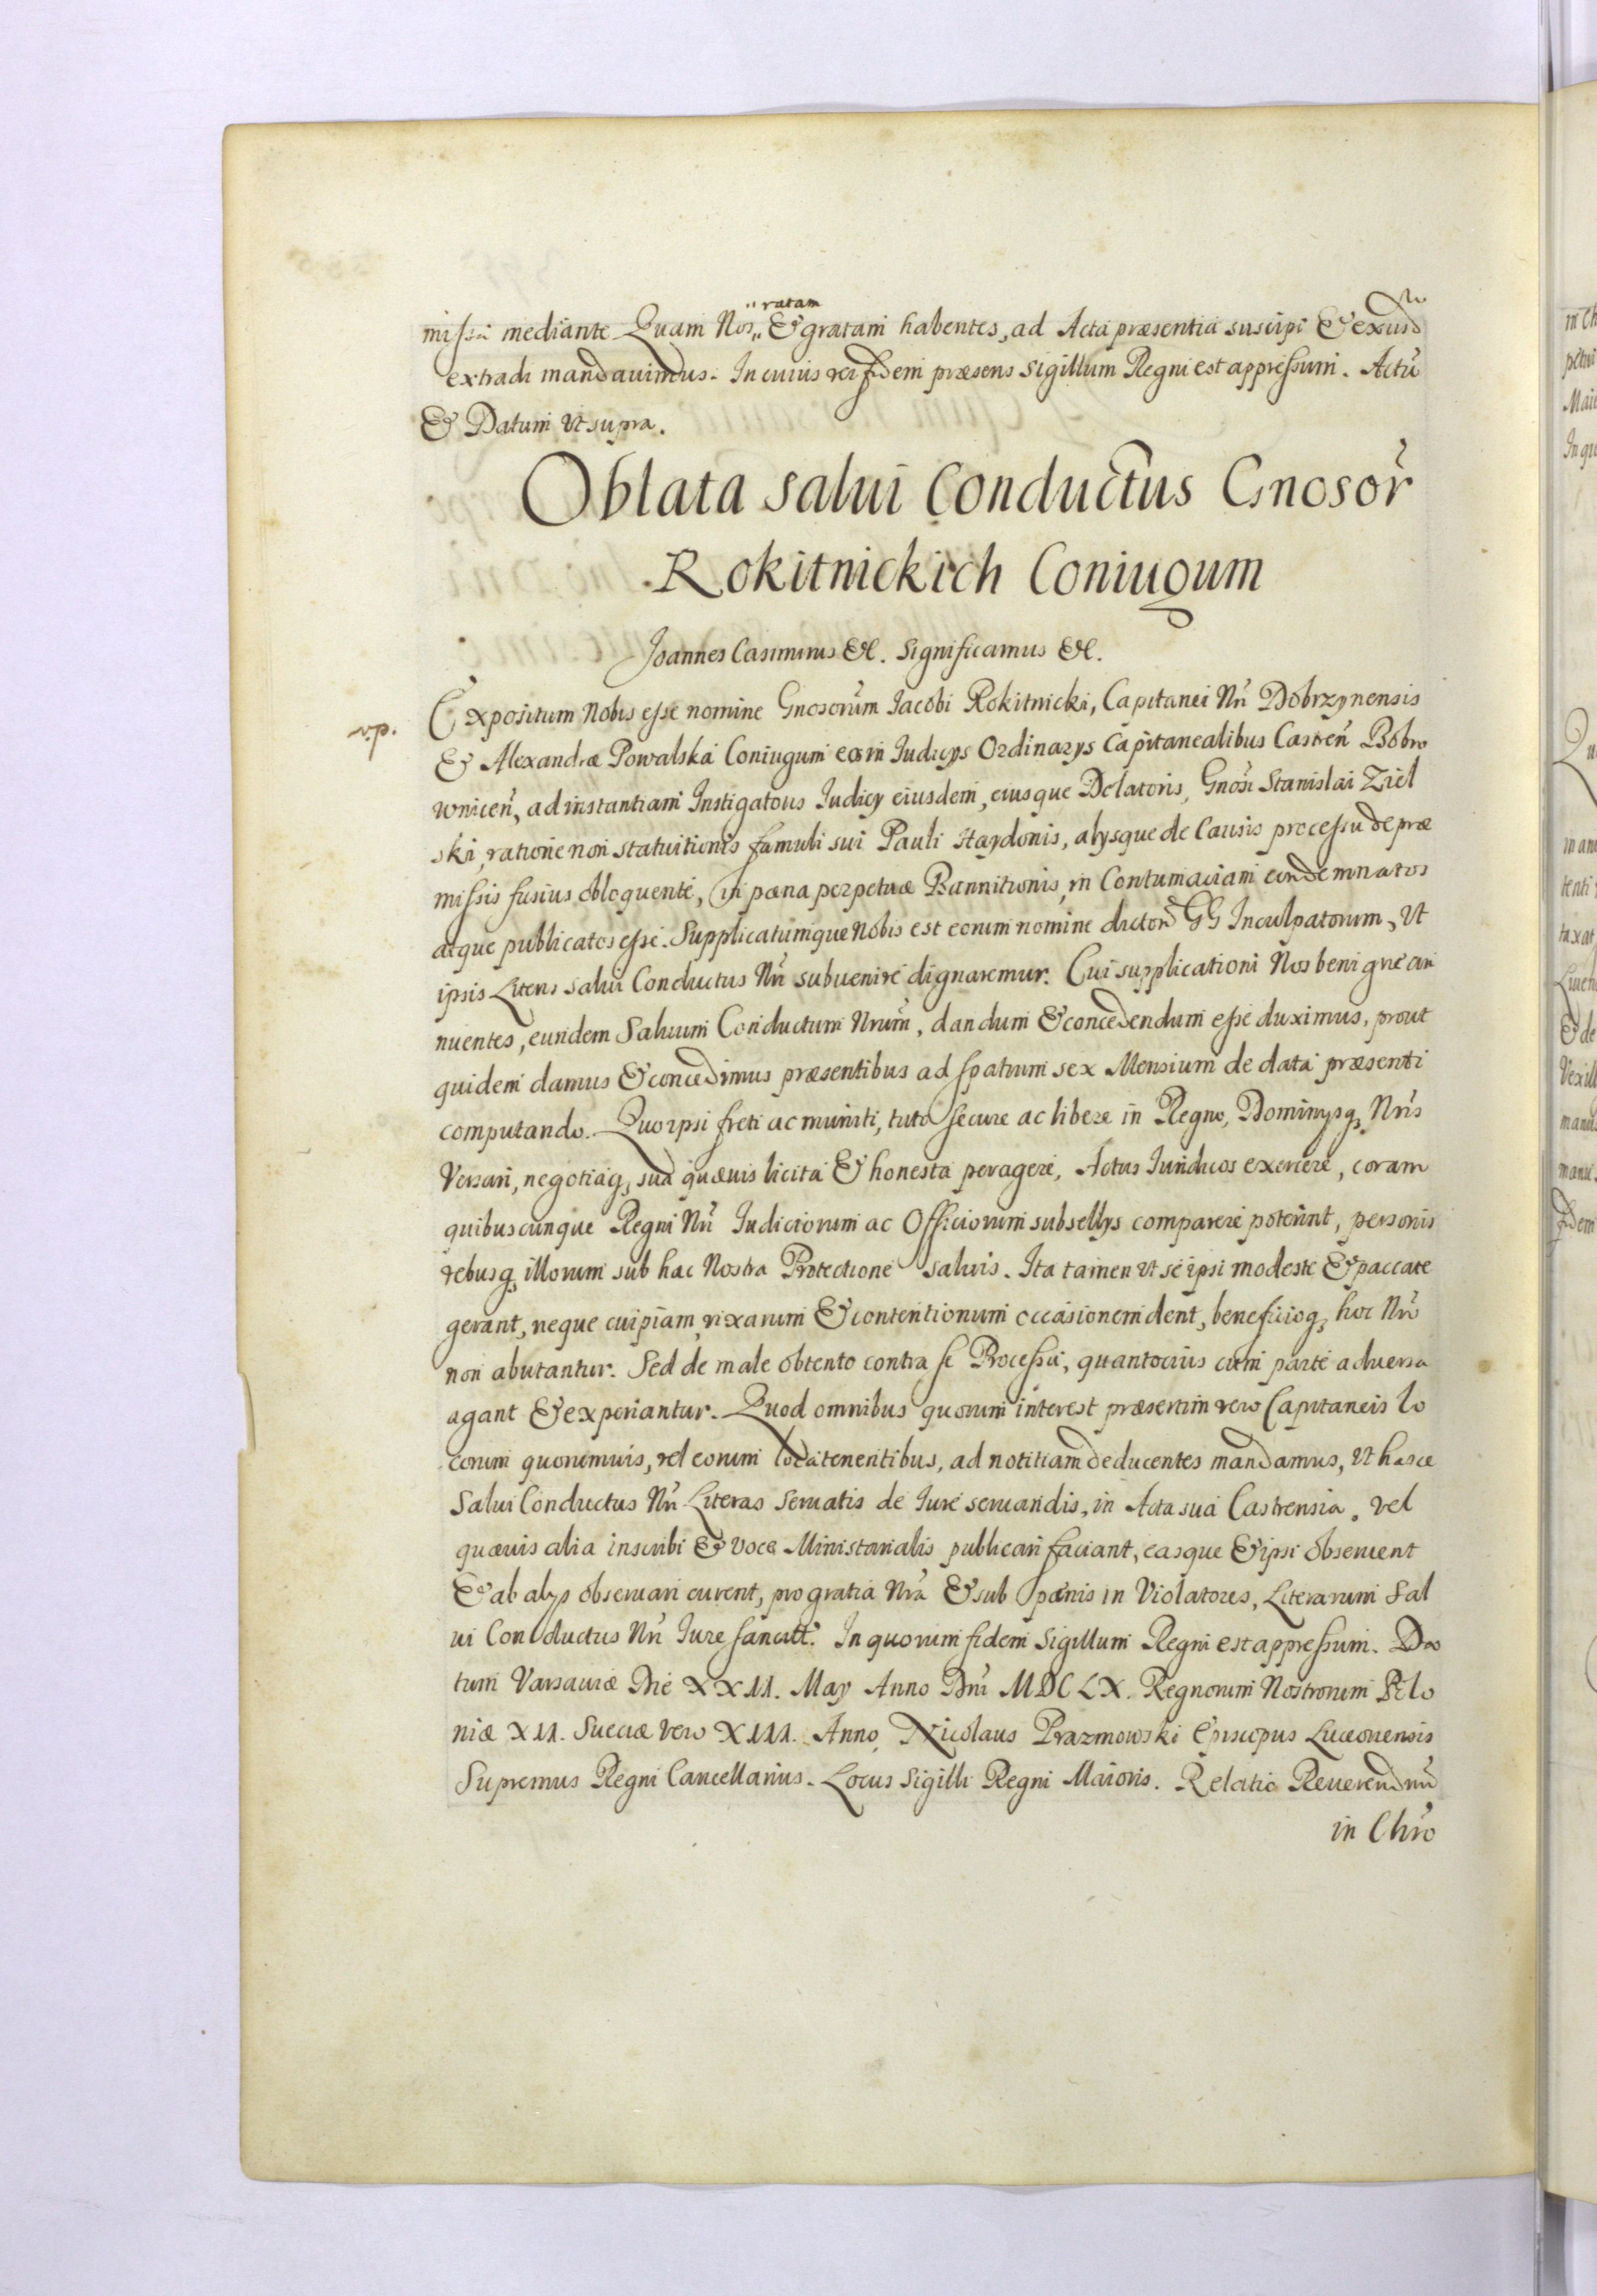 missa mediante. Quam Nos „ ratam & gratam habentes, ad Acta præsentia suscipi & exinde
extradi mandauimus. In cuius rei fidem præsens Sigillum Regni est appressum. Actũ
& Datum vt supra.
Oblata salui Conductus Gnosor̃
Rokitnickich Coniugum
Joannes Casimirus &c. Significamus &c.
v.p.
Expositum Nobis esse nomine Gnosorũm Iacobi Rokitnicki, Capitanei Nr̃i Dobrzynensis
& Alexandræ Powalska Coniugum eos in Iudicijs Ordinarijs Capitanealibus Castreñ Bobro
wniceñ, ad instantiam Instigatoris Iudicij eiusdem, eiusque Delatoris, Gnosi Stanislai Ziel
ski, ratione non statuitionis famuli sui Pauli Haydonis, alijsque de Causis processu de præ
missis fusius obloquente, in pœna perpetuæ Bannitionis, in Contumaciam condemnatos
atque publicatos esse. Supplicatumque Nobis est eorum nomine dictorũ GG Inculpatorum, Vt
ipsis Literis salui Conductus Nr̃i subuenire dignaremur. Cui supplicationi Nos benigne an
nuentes, eundem Saluum Conductum Nrum̃, dandum & concedendum esse duximus, prout
quidem damus & concedimus præsentibus ad spatium sex Mensium de data præsenti
computando. Quo ipsi freti ac muniti, tuto secure ac libere in Regno, Dominijsq, Nr̃is
Versari, negotiaq, sua quæuis licita & honesta peragere, Actus Iuridicos exercere, coram
quibuscunque Regni Nr̃i Iudiciorum ac Officiorum subsellijs comparere poterunt, personis
rebusq, illorum sub hac Nostra Protectione saluis. Ita tamen vt se ipsi modeste & paccate
gerant, neque cuipiam rixarum & contentionum occasionem dent, beneficioq, hoc Nr̃o
non abutantur. Sed de male obtento contra se Processu, quantocius cum parte aduersa
agant & experiantur. Quod omnibus quorum interest præsertim vero Capitaneis lo
corum quorumuis, vel eorum locatenentibus, ad notitiam deducentes mandamus, vt hasce
Salui Conductus Nr̃i Literas seruatis de Iure seruandis, in Acta sua Castrensia, vel
quæuis alia inscribi & voce Ministerialis publicari faciant, easque & ipsi obseruent
& ab alijs obseruari curent, pro gratia Nr̃a & sub pœnis in Violatores, Literarum Sal
ui Conductus Nr̃i Iure sancitt. In quorum fidem Sigillum Regni est appressum. Da
tum Varsauiæ Die XXII. May Anno Dñi MDCLX. Regnorum Nostrorum Polo
niæ XII. Sueciæ vero XIII. Anno, Nicolaus Prazmowski Episcopus Luceoriensis
Supremus Regni Cancellarius. Locus Sigilli Regni Maioris. Relatio Reuerendmi
in Chr̃o